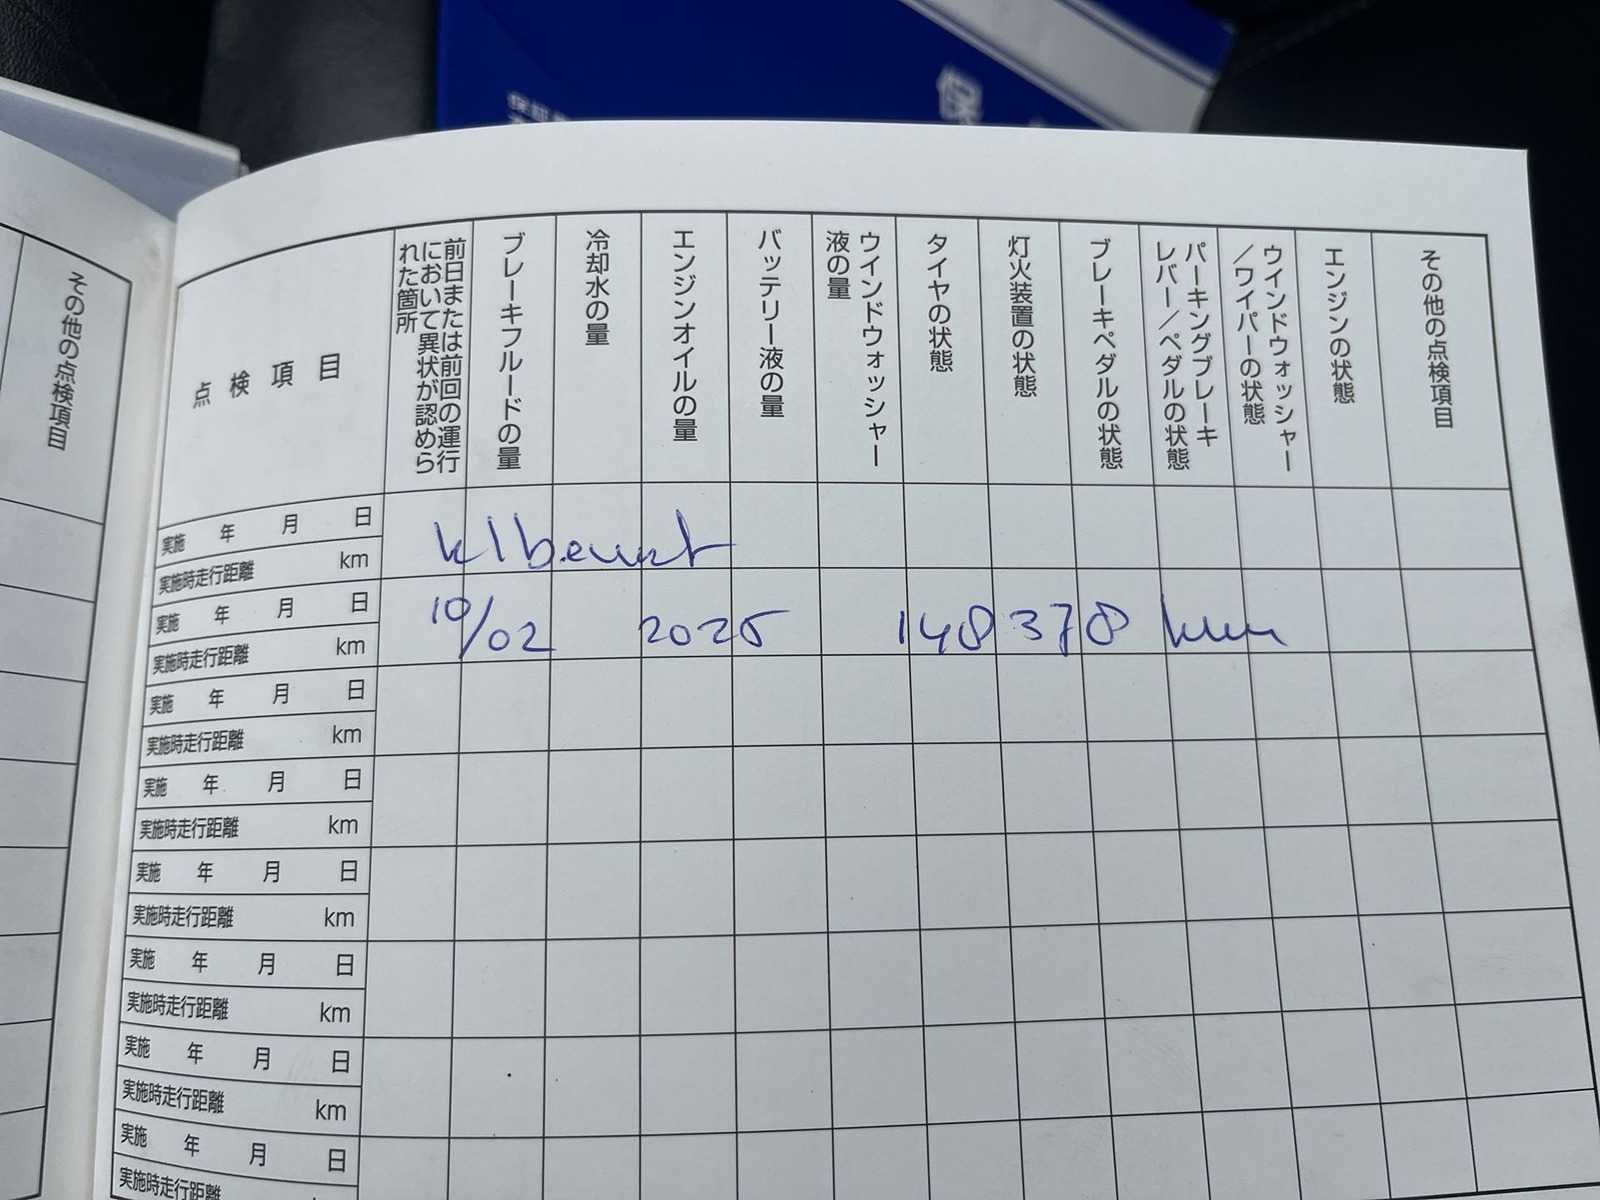 保証
保
その他の点検項目
点検項目
前日または前回の運行において異状が認められた箇所
ブレーキフルードの量
冷却水の量
エンジンオイルの量
バッテリー液の量
ウインドウォッシャー液の量
タイヤの状態
灯火装置の状態
ブレーキペダルの状態
パーキングブレーキレバー/ペダルの状態
ウインドウォッシャー/ワイパーの状態
エンジンの状態
その他の点検項目
実施 年 月 日
実施時走行距離 km
実施 年 月 日
10/02 2025 148378 km
実施時走行距離 km
実施 年 月 日
実施時走行距離 km
実施 年 月 日
実施時走行距離 km
実施 年 月 日
実施時走行距離 km
実施 年 月 日
実施時走行距離 km
実施 年 月 日
実施時走行距離 km
実施 年 月 日
実施時走行距離 km